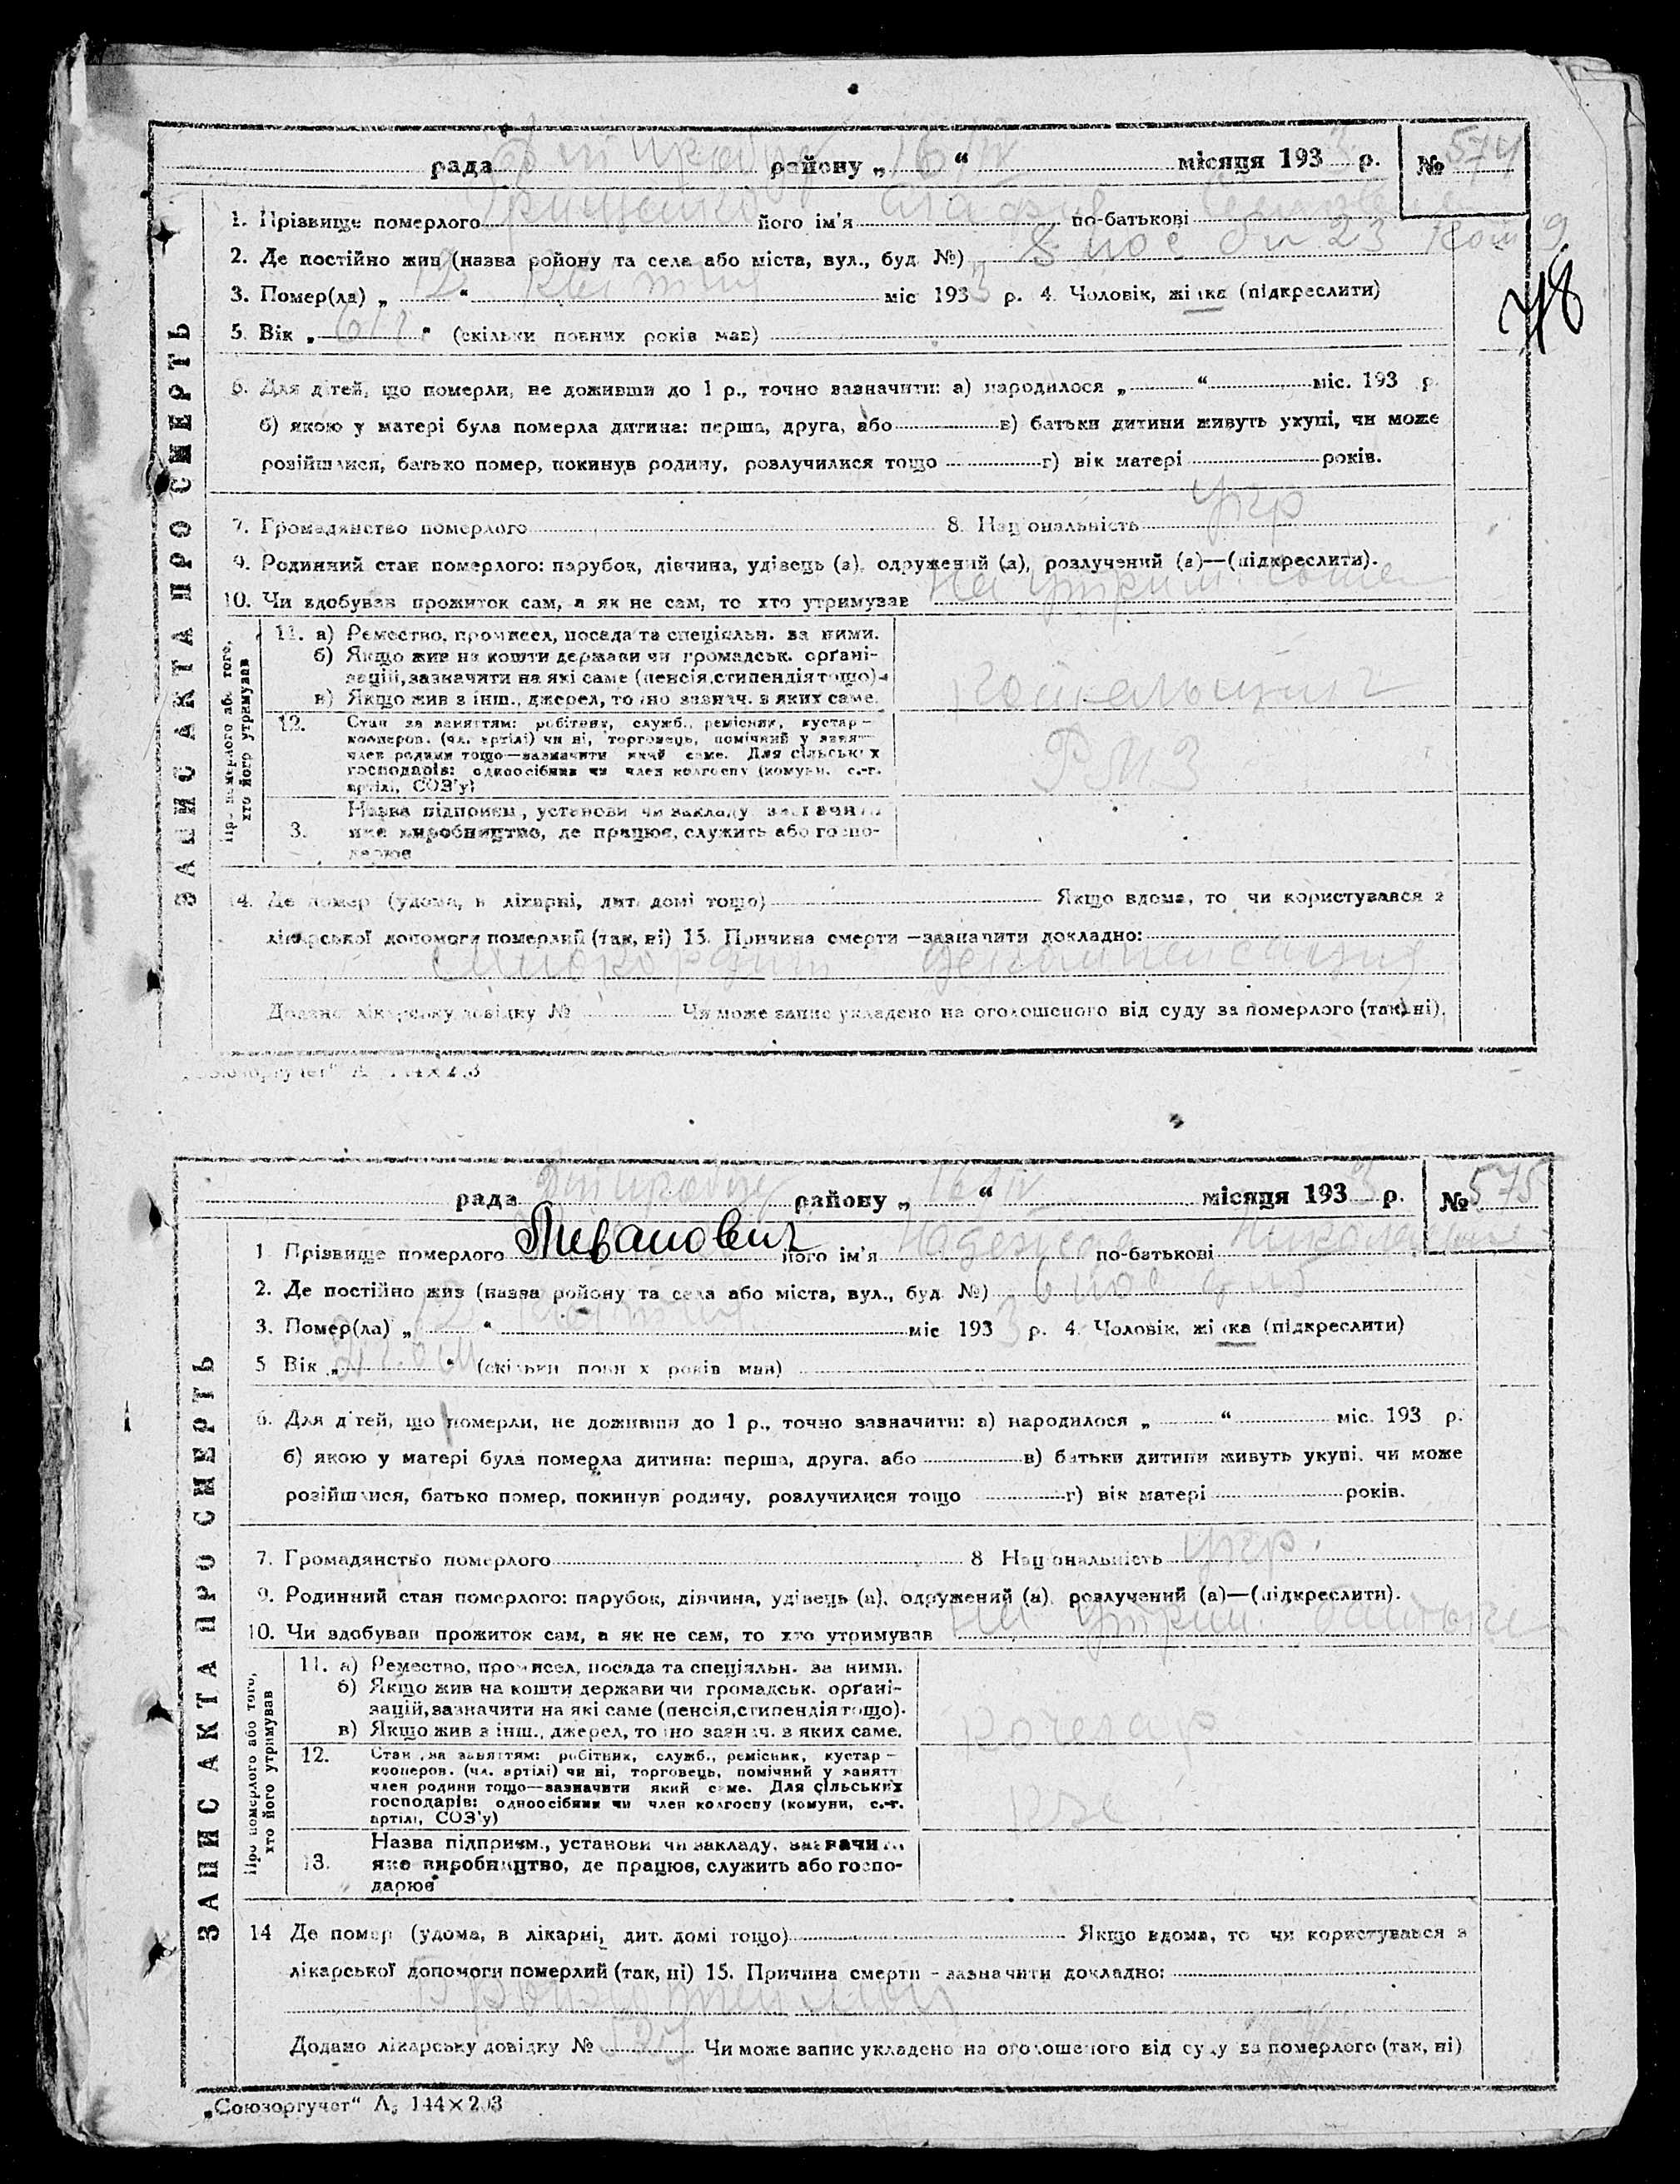 рада району „ 16/IV “ місяця 193 3 р. № 574
1. Прізвище померлого Грищенко його ім'я по-батькові
2. Де постійно жив (назва ройону та села або міста, вул., буд. №) 8 пос б н 23 ком 9
3. Помер(ла) „ 12 “ квітня міс 193 3 р. 4. Чоловік, жінка (підкреслити)
5. Вік „ “ (скільки повних років мав)
6. Для дітей, що померли, не доживши до 1 р., точно зазначити: а) народилося „ “ міс. 193 р.
б) якою у матері була померла дитина: перша, друга, або в) батьки дитини живуть укупі, чи може
розійшлися, батько помер, покинув родину, розлучилися тощо г) вік матері років.
7. Громадянство померлого 8. Національність укр
9. Родинний стан померлого: парубок, дівчина, удівець (а), одружений (а), розлучений (а)—(підкреслити).
10. Чи здобував прожиток сам, а як не сам, то хто утримував На утрим
ЗАПИС АКТА ПРО СМЕРТЬ
Про померлого або того, хто його утримував
11. а) Ремество, промисел, посада та спеціяльн. за ними.
б) Якщо жив на кошти держави чи громадськ. органі-
зацій, зазначити на які саме (пенсія, стипендія тощо).
в) Якщо жив з інш., джерел, точно зазнач. з яких саме.
12. Стан за заняттям: робітник, служб., ремісник, кустар —
кооперов. (чл. артілі) чи ні, торговець, помічний у занятт
член родини тощо—зазначити який саме. Для сільських
господарів: одноосібник чи член колгоспу (комуни, с.-г.
артілі, СОЗ'у)
Назва підприєм., установи чи закладу, зазначити
3. яке виробництво, де працює, служить або госпо-
дарює
14. Де помер (удома, в лікарні, дит. домі тощо) Якщо вдома, то чи користувався з
лікарської допомоги померлий (так, ні) 15. Причина смерти — зазначити докладно:
миокордит декомпенсация
Додано лікарську довідку № Чи може запис укладено на оголошеного від суду за померлого (так, ні).
78
рада району „ 16/IV “ місяця 193 3 р. № 575
1. Прізвище померлого Ливанович його ім'я Надежда по-батькові
2. Де постійно жив (назва ройону та села або міста, вул., буд. №) 6 пос б н 5
3. Помер(ла) „ 12 “ квітня міс 193 3 р. 4. Чоловік, жінка (підкреслити)
5 Вік „ “ (скільки повних років мав)
6. Для дітей, що померли, не доживши до 1 р., точно зазначити: а) народилося „ “ міс. 193 р.
б) якою у матері була померла дитина: перша, друга, або в) батьки дитини живуть укупі, чи може
розійшлися, батько помер, покинув родину, розлучилися тощо г) вік матері років.
7. Громадянство померлого 8 Національність укр.
9. Родинний стан померлого: парубок, дівчина, удівець (а), одружений (а), розлучений (а)—(підкреслити).
10. Чи здобував прожиток сам, а як не сам, то хто утримував На утрим. батька
ЗАПИС АКТА ПРО СМЕРТЬ
Про померлого або того, хто його утримував
11. а) Ремество, промисел, посада та спеціяльн. за ними.
б) Якщо жив на кошти держави чи громадськ. органі-
зацій, зазначити на які саме (пенсія, стипендія тощо).
в) Якщо жив з інш., джерел, точно зазнач. з яких саме.
кочегар
12. Стан за заняттям: робітник, служб., ремісник, кустар —
кооперов. (чл. артілі) чи ні, торговець, помічний у занятт
член родини тощо—зазначити який саме. Для сільських
господарів: одноосібник чи член колгоспу (комуни, с.-г.
артілі, СОЗ'у)
Назва підприєм., установи чи закладу, зазначити
13. яке виробництво, де працює, служить або госпо-
дарює
14 Де помер (удома, в лікарні, дит. домі тощо) Якщо вдома, то чи користувався з
лікарської допомоги померлий (так, ні) 15. Причина смерти — зазначити докладно:
Додано лікарську довідку № Чи може запис укладено на оголошеного від суду за померлого (так, ні)
„Союзоргучет“ Л. 144×203